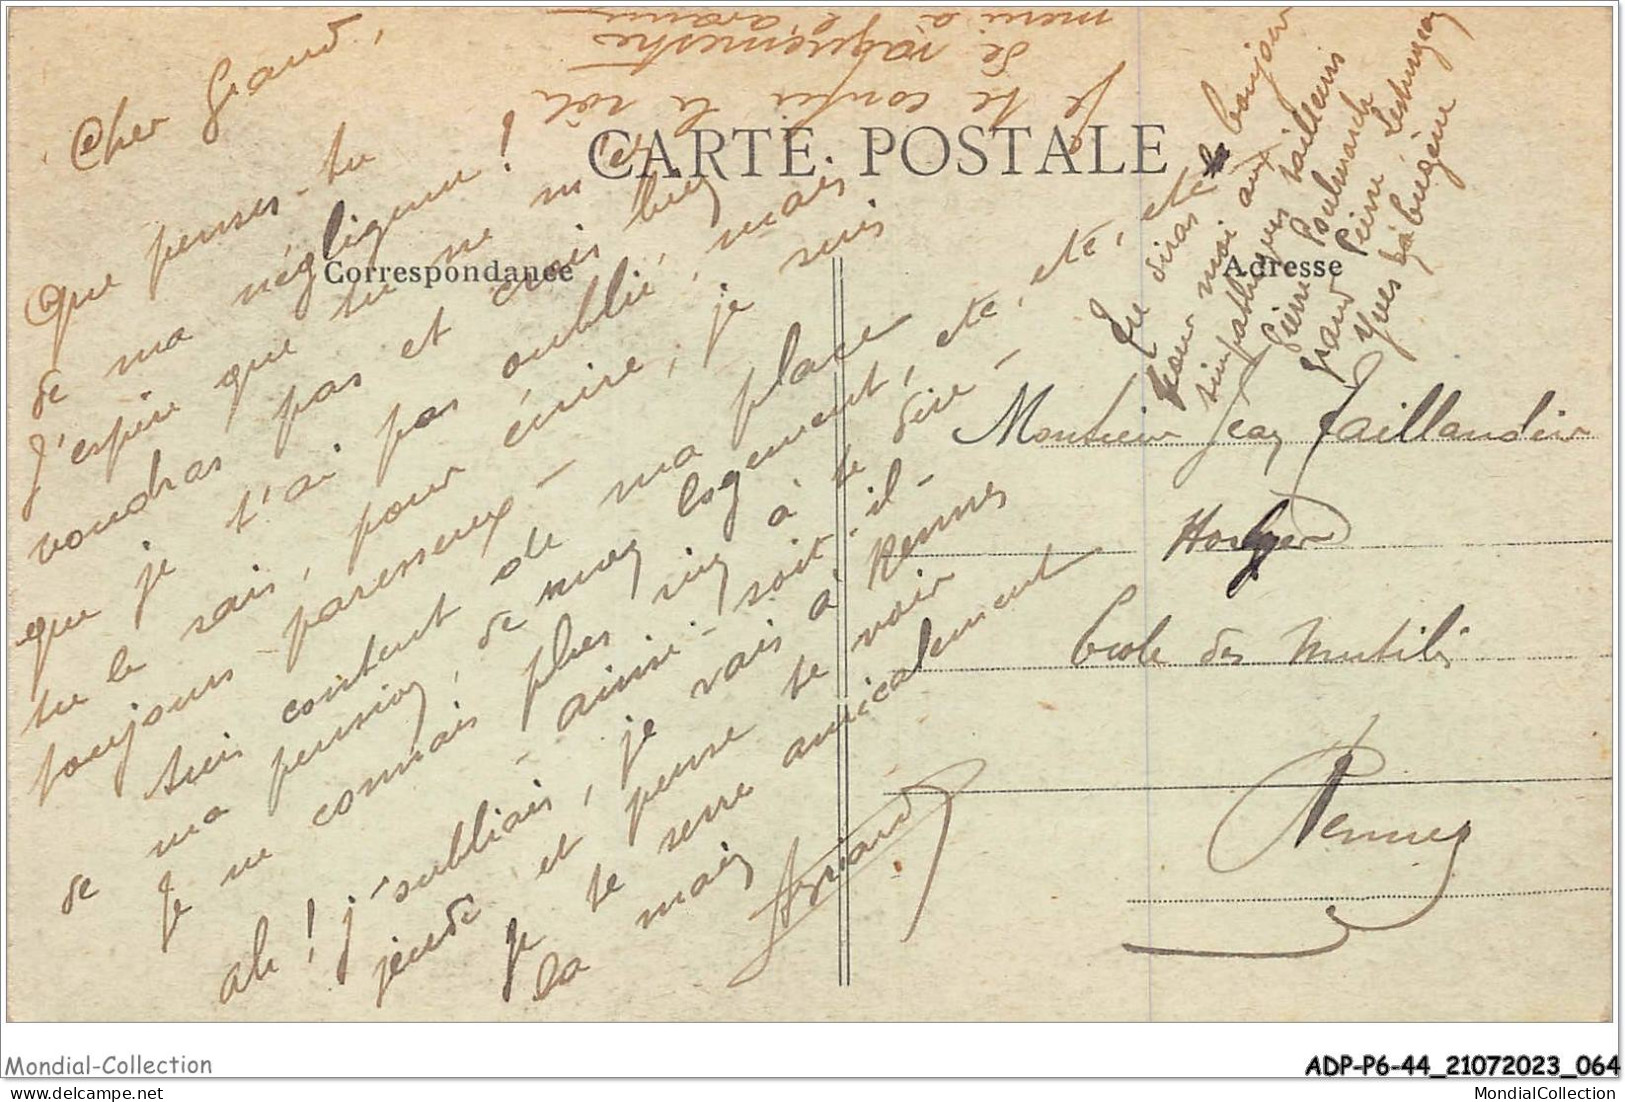 CARTE POSTALE
Correspondance
Adresse
Cher Grand,
Que penses-tu
de ma négligence !
J'espère que tu ne m'en
voudras pas et crois bien
que je t'ai pas oublié, mais
tu le sais, pour écrire, je suis
toujours paresseux -
Suis content de ma place
de ma pension, de mon logement, etc, etc, etc, etc
Je ne connais plus rien à te dire -
- ainsi soit-il -
ah ! j'oubliais, je vais à Rennes
jeudi et pense te voir
Je te serre amicalement
la main
Je te confie le rôle
de vaguemestre
Tu diras le bonjour
pour moi aux
simpathiques tailleurs
Pierre
grand Pierre
Yves Eugène
Monsieur Jean Taillandier
Horloger
École des Mutilés
Rennes
Mondial-Collection
ADP-P6-44_21072023_064
MondialCollection
MondialCollection